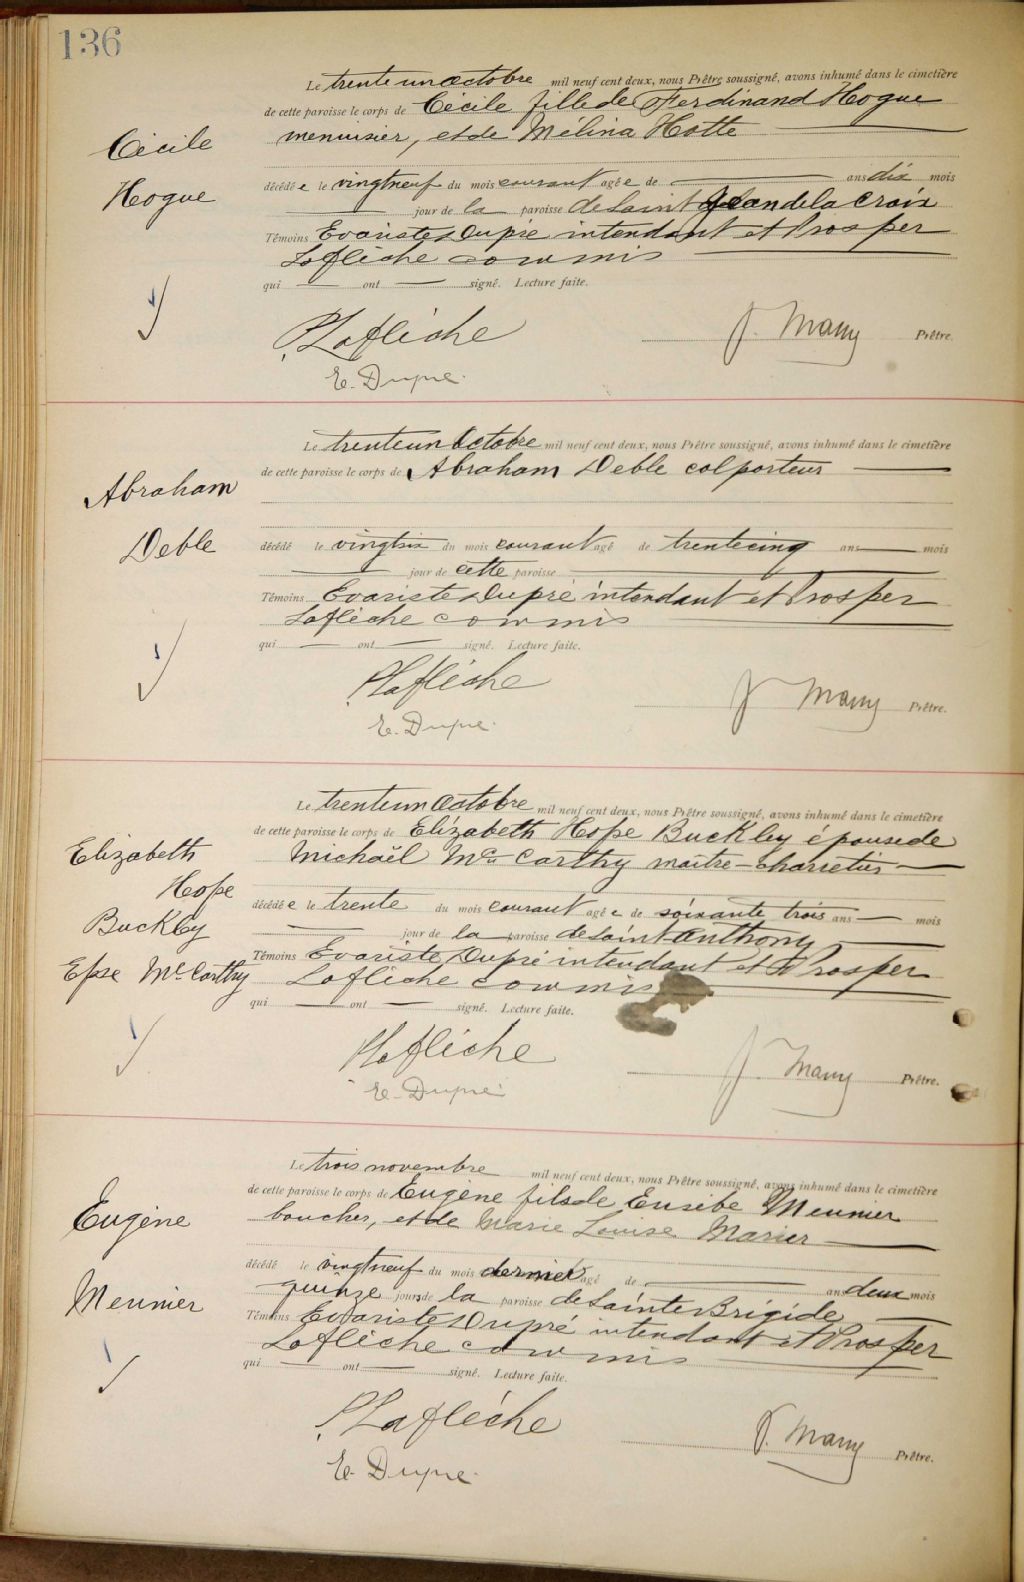 136
Le trente un octobre mil neuf cent deux, nous Prêtre soussigné, avons inhumé dans le cimetière
de cette paroisse le corps de Cécile fille de Ferdinand Hogue
menuisier, et de Mélina Hotte
Cécile
Hogue
décédée le vingtneuf du mois courant agée de ans dix mois
jour de la paroisse de Saint Jean de la croix
Témoins Evariste Dupré intendant et Prosper
Laflèche commis
qui ont signé. Lecture faite.
P. Laflèche J. Many Prêtre.
E. Dupré.
Le trenteun Octobre mil neuf cent deux, nous Prêtre soussigné, avons inhumé dans le cimetière
de cette paroisse le corps de Abraham Deble colporteur
Abraham
Deble
décédé le vingtsix du mois courant agé de trentecinq ans mois
jour de cette paroisse
Témoins Evariste Dupré intendant et Prosper
Laflèche commis
qui ont signé. Lecture faite.
P Laflèche J Many Prêtre.
E. Dupré.
Le trenteun Octobre mil neuf cent deux, nous Prêtre soussigné, avons inhumé dans le cimetière
de cette paroisse le corps de Elizabeth Hope Buckley épouse de
Michaël Mc Carthy maître-charretier
Elizabeth
Hope
Buckley
Epse Mc Carthy
décédée le trente du mois courant agée de soixante trois ans mois
jour de la paroisse de Saint Anthony
Témoins Evariste Dupré intendant et Prosper
Laflèche commis
qui ont signé. Lecture faite.
P Laflèche J. Many Prêtre.
E. Dupré
Le trois novembre mil neuf cent deux, nous Prêtre soussigné, avons inhumé dans le cimetière
de cette paroisse le corps de Eugène fils de Eusèbe Meunier
boucher, et de Marie Louise Marier
Eugène
Meunier
décédé le vingtneuf du mois dernier agé de ans deux mois
quinze jours de la paroisse de Sainte Brigide
Témoins Evariste Dupré intendant et Prosper
Laflèche commis
qui ont signé. Lecture faite.
P. Laflèche J. Many Prêtre.
E. Dupré.